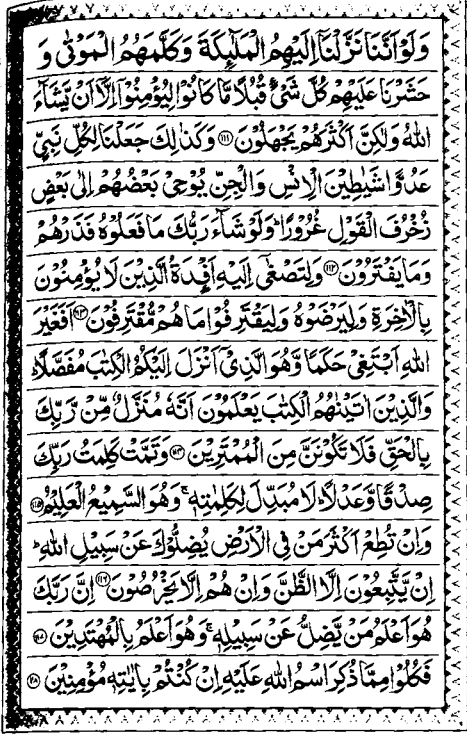 وَلَوْ اَنَّنَا نَزَّلْنَاۤ اِلَيْهِمُ الْمَلٰٓئِكَةَ وَكَلَّمَهُمُ الْمَوْتٰى وَ
حَشَرْنَا عَلَيْهِمْ كُلَّ شَیْءٍ قُبُلًا مَّا كَانُوْا لِيُؤْمِنُوْۤا اِلَّاۤ اَنْ يَّشَآءَ
اللّٰهُ وَلٰكِنَّ اَكْثَرَهُمْ يَجْهَلُوْنَ ۝۱۱۱ وَكَذٰلِكَ جَعَلْنَا لِكُلِّ نَبِيٍّ
عَدُوًّا شَيٰطِيْنَ الْاِنْسِ وَالْجِنِّ يُوْحِیْ بَعْضُهُمْ اِلٰى بَعْضٍ
زُخْرُفَ الْقَوْلِ غُرُوْرًا ؕ وَلَوْ شَآءَ رَبُّكَ مَا فَعَلُوْهُ فَذَرْهُمْ
وَمَا يَفْتَرُوْنَ ۝۱۱۲ وَلِتَصْغٰۤى اِلَيْهِ اَفْـِٕدَةُ الَّذِيْنَ لَا يُؤْمِنُوْنَ
بِالْاٰخِرَةِ وَلِيَرْضَوْهُ وَلِيَقْتَرِفُوْا مَا هُمْ مُّقْتَرِفُوْنَ ۝۱۱۳ اَفَغَيْرَ
اللّٰهِ اَبْتَغِیْ حَكَمًا وَّهُوَ الَّذِیْۤ اَنْزَلَ اِلَيْكُمُ الْكِتٰبَ مُفَصَّلًا ؕ
وَالَّذِيْنَ اٰتَيْنٰهُمُ الْكِتٰبَ يَعْلَمُوْنَ اَنَّهٗ مُنَزَّلٌ مِّنْ رَّبِّكَ
بِالْحَقِّ فَلَا تَكُوْنَنَّ مِنَ الْمُمْتَرِيْنَ ۝۱۱۴ وَتَمَّتْ كَلِمَتُ رَبِّكَ
صِدْقًا وَّعَدْلًا ؕ لَا مُبَدِّلَ لِكَلِمٰتِهٖ ۚ وَهُوَ السَّمِيْعُ الْعَلِيْمُ ۝۱۱۵
وَاِنْ تُطِعْ اَكْثَرَ مَنْ فِی الْاَرْضِ يُضِلُّوْكَ عَنْ سَبِيْلِ اللّٰهِ ؕ
اِنْ يَّتَّبِعُوْنَ اِلَّا الظَّنَّ وَاِنْ هُمْ اِلَّا يَخْرُصُوْنَ ۝۱۱۶ اِنَّ رَبَّكَ
هُوَ اَعْلَمُ مَنْ يَّضِلُّ عَنْ سَبِيْلِهٖ ۚ وَهُوَ اَعْلَمُ بِالْمُهْتَدِيْنَ ۝۱۱۷
فَكُلُوْا مِمَّا ذُكِرَ اسْمُ اللّٰهِ عَلَيْهِ اِنْ كُنْتُمْ بِاٰيٰتِهٖ مُؤْمِنِيْنَ ۝۱۱۸